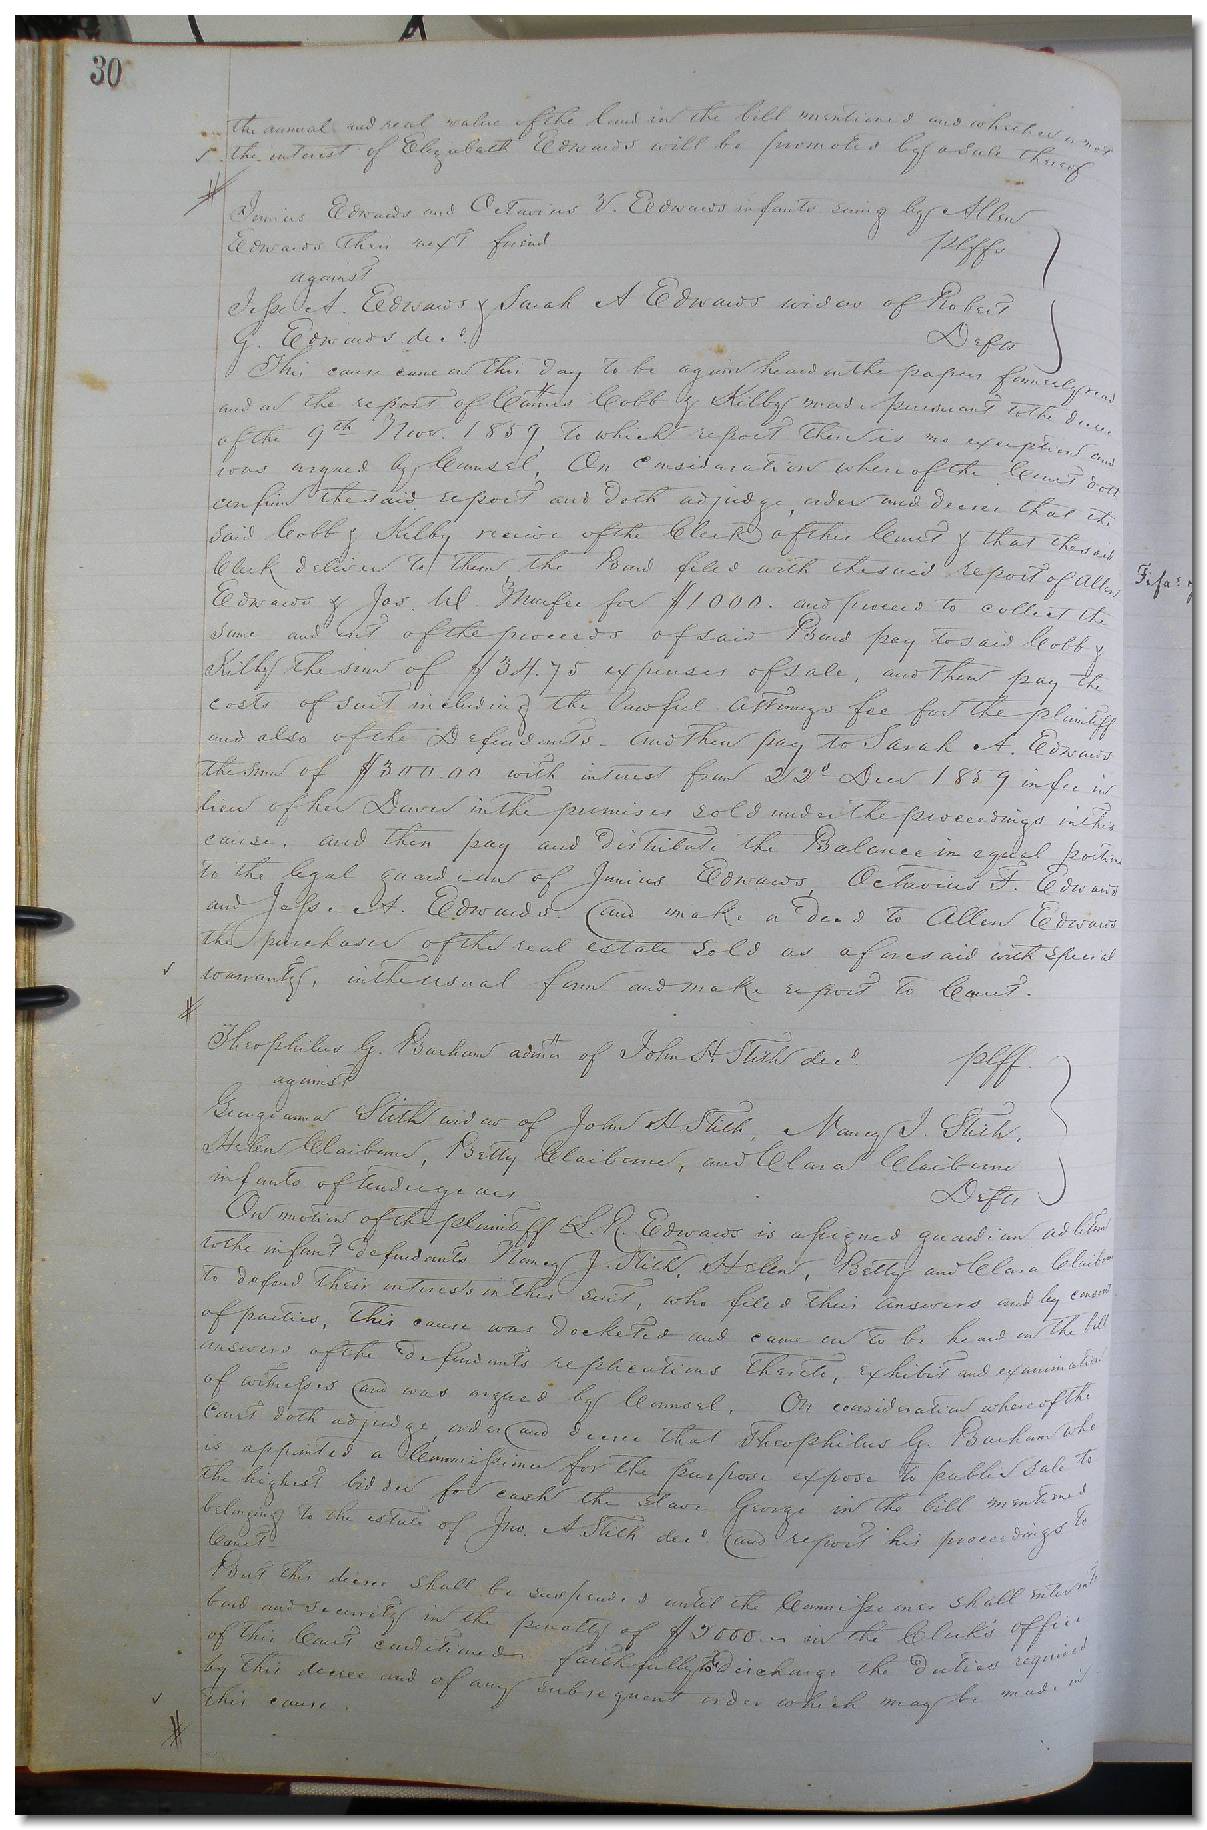 30
the annual and real value of the land in the bill mentioned and whether or not
the interest of Elizabeth Edwards will be promoted by a sale thereof
Junius Edwards and Octavius V. Edwards infants suing by Allen
Edwards their next friend plffs
against
Jesse A. Edwards & Sarah A Edwards widow of Robert
G. Edwards decd. Defts
This cause came on this day to be again heard on the papers formerly read
and on the report of Comrs Cobb & Kilby made pursuant to the decree
of the 9th Nov. 1859, to which report there is no exception and
was argued by Counsel. On consideration whereof the Court doth
confirm the said report and doth adjudge, order and decree that the
said Cobb & Kilby receive of the Clerk of this Court & that the said
Clerk deliver to them the Bond filed with the said report of Allen
Edwards & Jos. W. Murfee for $1000. and proceed to collect the
same and out of the proceeds of said Bond pay to said Cobb &
Kilby the sum of $34.75 expenses of sale, and then pay the
costs of suit including the lawful attorneys fee for the plaintiff
and also of the Defendants. and then pay to Sarah A. Edwards
the sum of $300.00 with interest from 22d Decr 1859 in fee in
lieu of her Dower in the premises sold under the proceedings in this
cause. and then pay and distribute the Balance in equal portions
to the legal guardian of Junius Edwards, Octavius F. Edwards
and Jesse A. Edwards. and make a deed to Allen Edwards
the purchaser of the real estate sold as aforesaid with special
warranty, in the usual form and make report to Court.
Theophilus G. Barham admr of John H Stith decd. plff.
against
Georgeanna Stith widow of John H Stith, Nancy J. Stith,
Helen Claiborne, Betty Claiborne, and Clara Claiborne
infants of tender years Defts
On motion of the plaintiff L. R. Edwards is assigned guardian ad litem
to the infant defendants Nancy J. Stith, Helen, Betty and Clara Claiborne
to defend their interests in this suit, who filed their answers and by consent
of parties, this cause was docketed and came on to be heard on the bill
answers of the defendants replications thereto, exhibits and examination
of witnesses and was argued by Counsel. On consideration whereof the
Court doth adjudge order and decree that Theophilus G. Barham who
is appointed a Commissioner for the purpose expose to public sale to
the highest bidder for cash the slave George in the bill mentioned
belonging to the estate of Jno. A Stith decd. and report his proceedings to
Court.
But this decree shall be suspended until the Commissioner shall enter into
bond and security in the penalty of $2000.00 in the Clerk's office
of this Court conditioned faithfully to discharge the duties required
by this decree and of any subsequent order which may be made in
this cause.
Fifa: